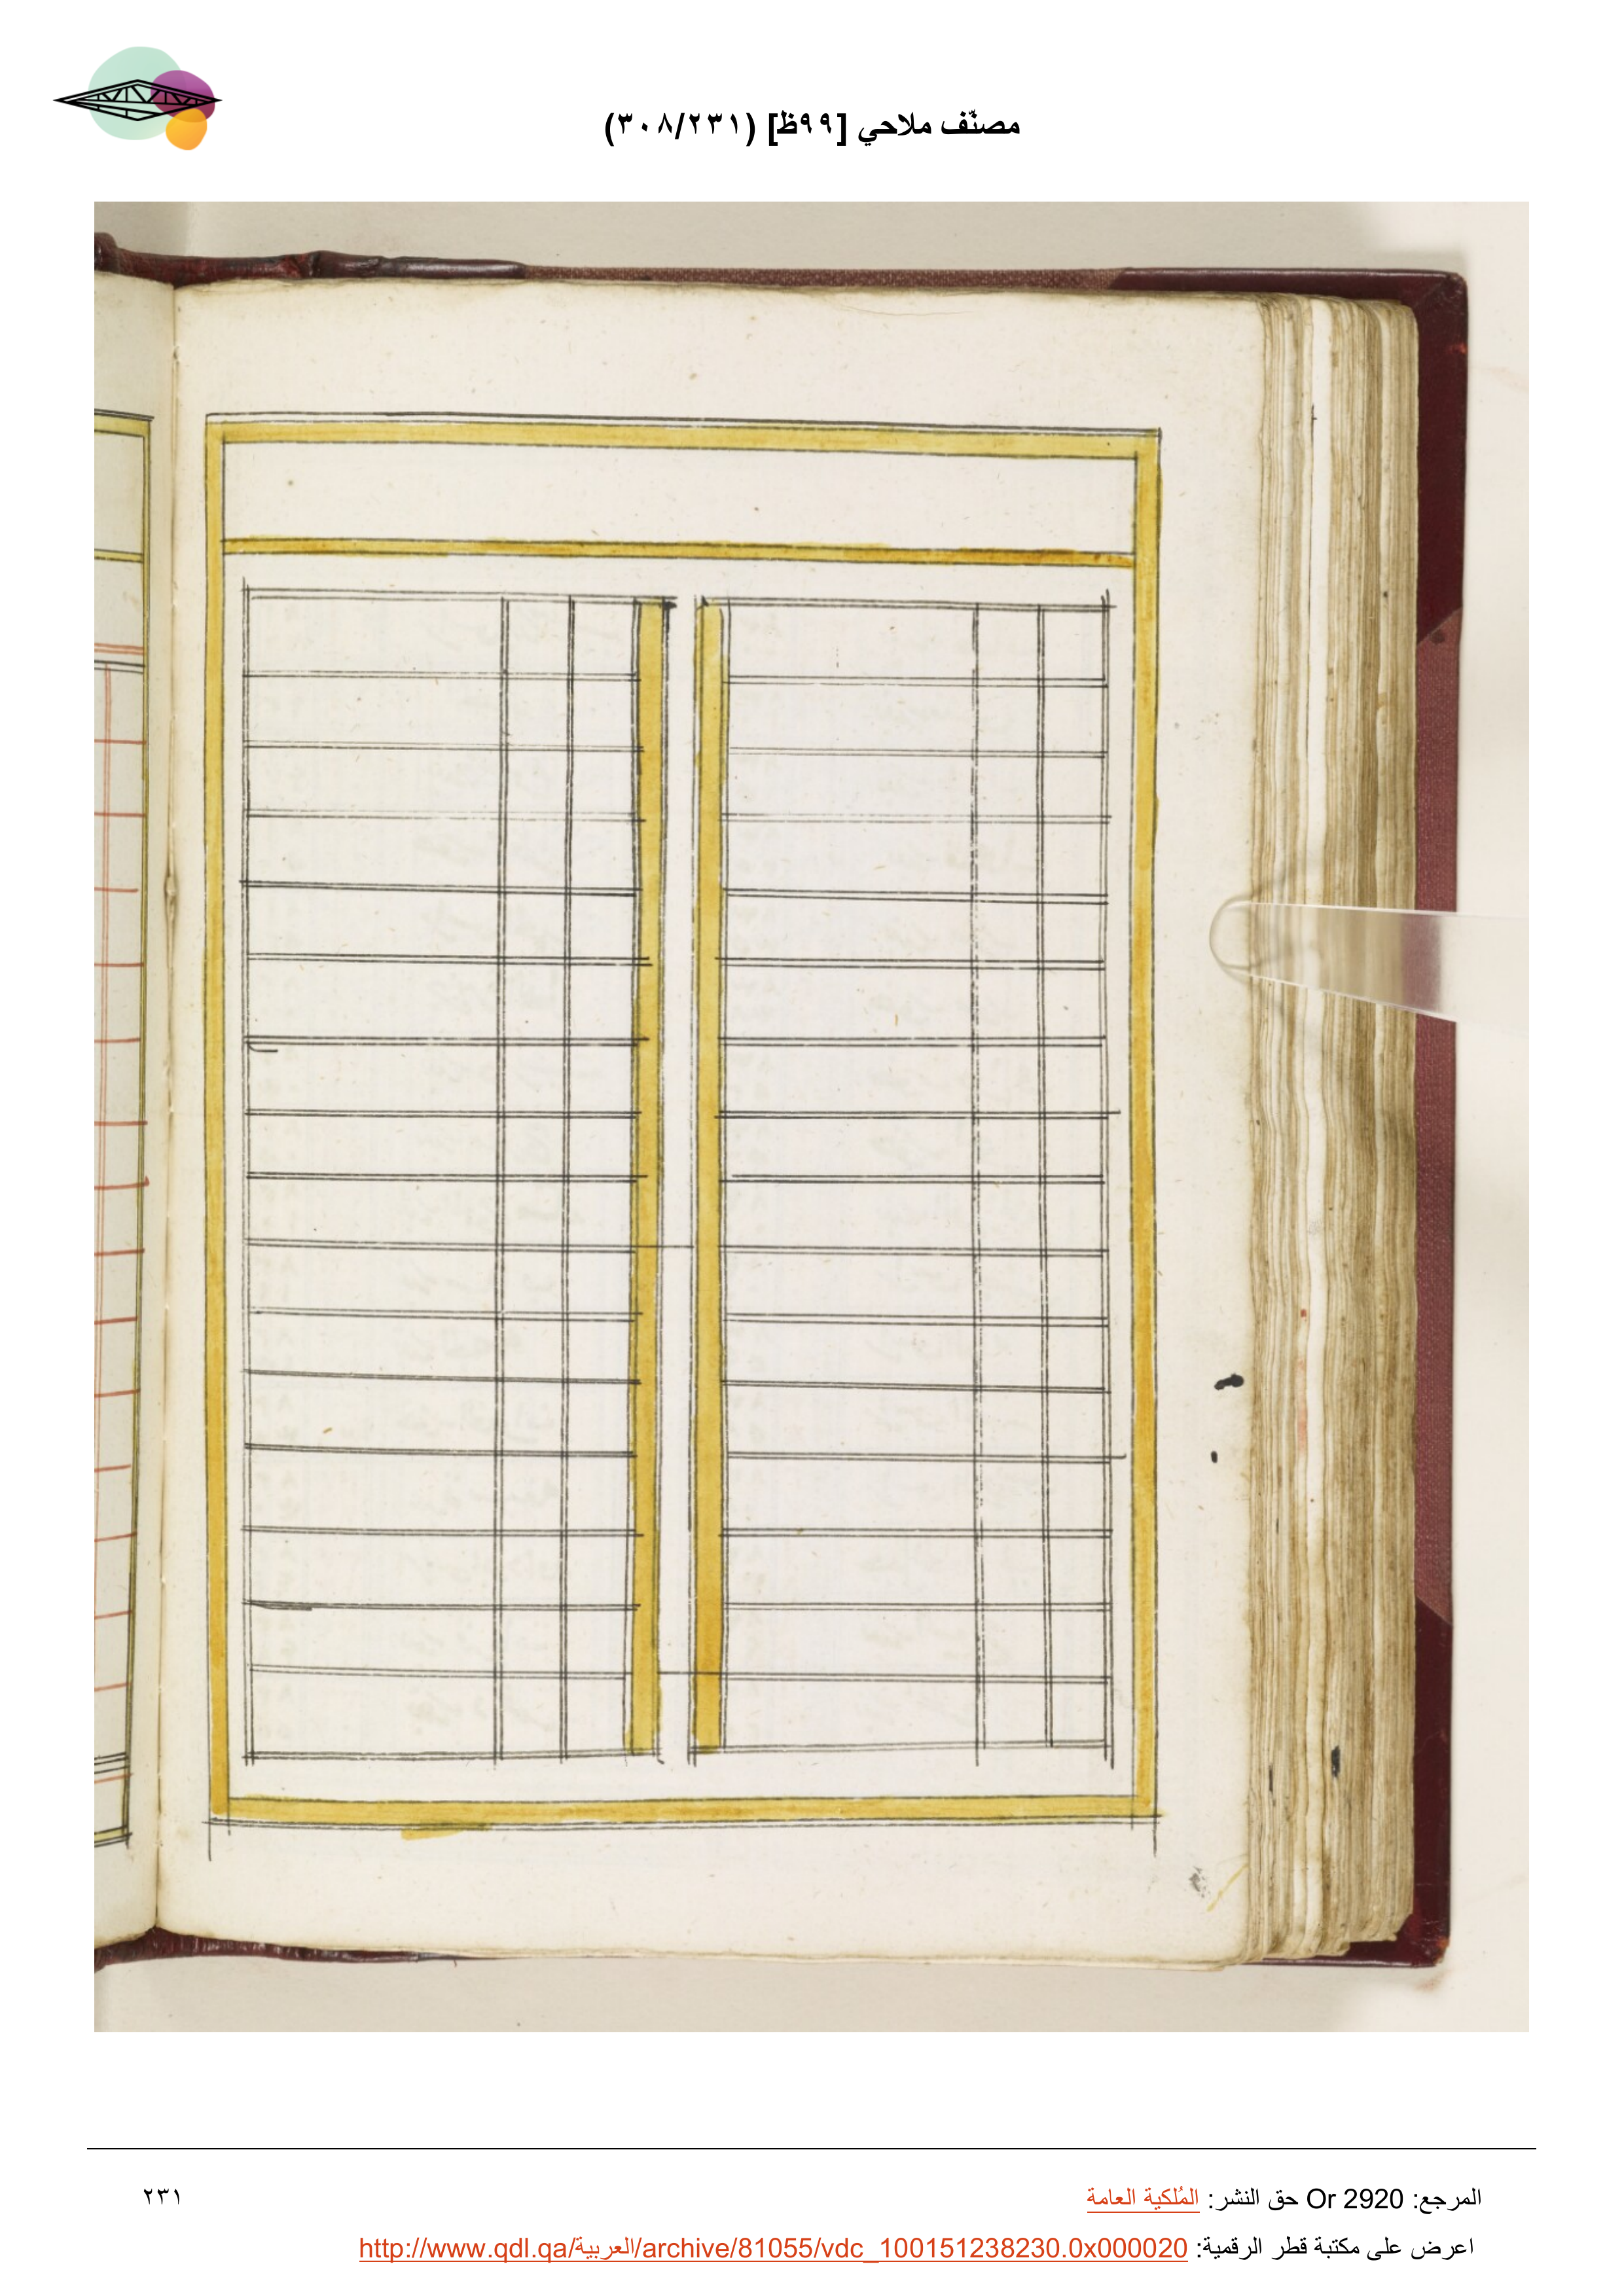 مصنّف ملاحي [٩٩ظ] (٣٠٨/٢٣١)
المرجع: Or 2920 حق النشر: المُلكية العامة
٢٣١
اعرض على مكتبة قطر الرقمية: http://www.qdl.qa/العربية/archive/81055/vdc_100151238230.0x000020